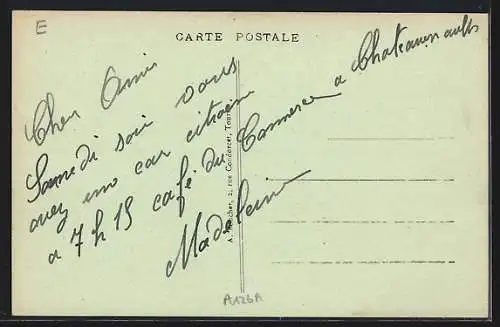 E
CARTE POSTALE
Cher Amis
Samedi soir vous
avez mo car citroën
a 7h15 café du Commerce a Chateaurenault
Madeleine
A. , 2, rue Condorcet, Tours
A126A